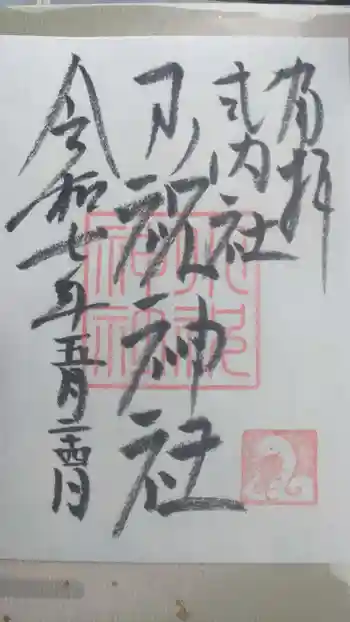 奉拝
式内社
水祝神社
令和七年五月二十四日